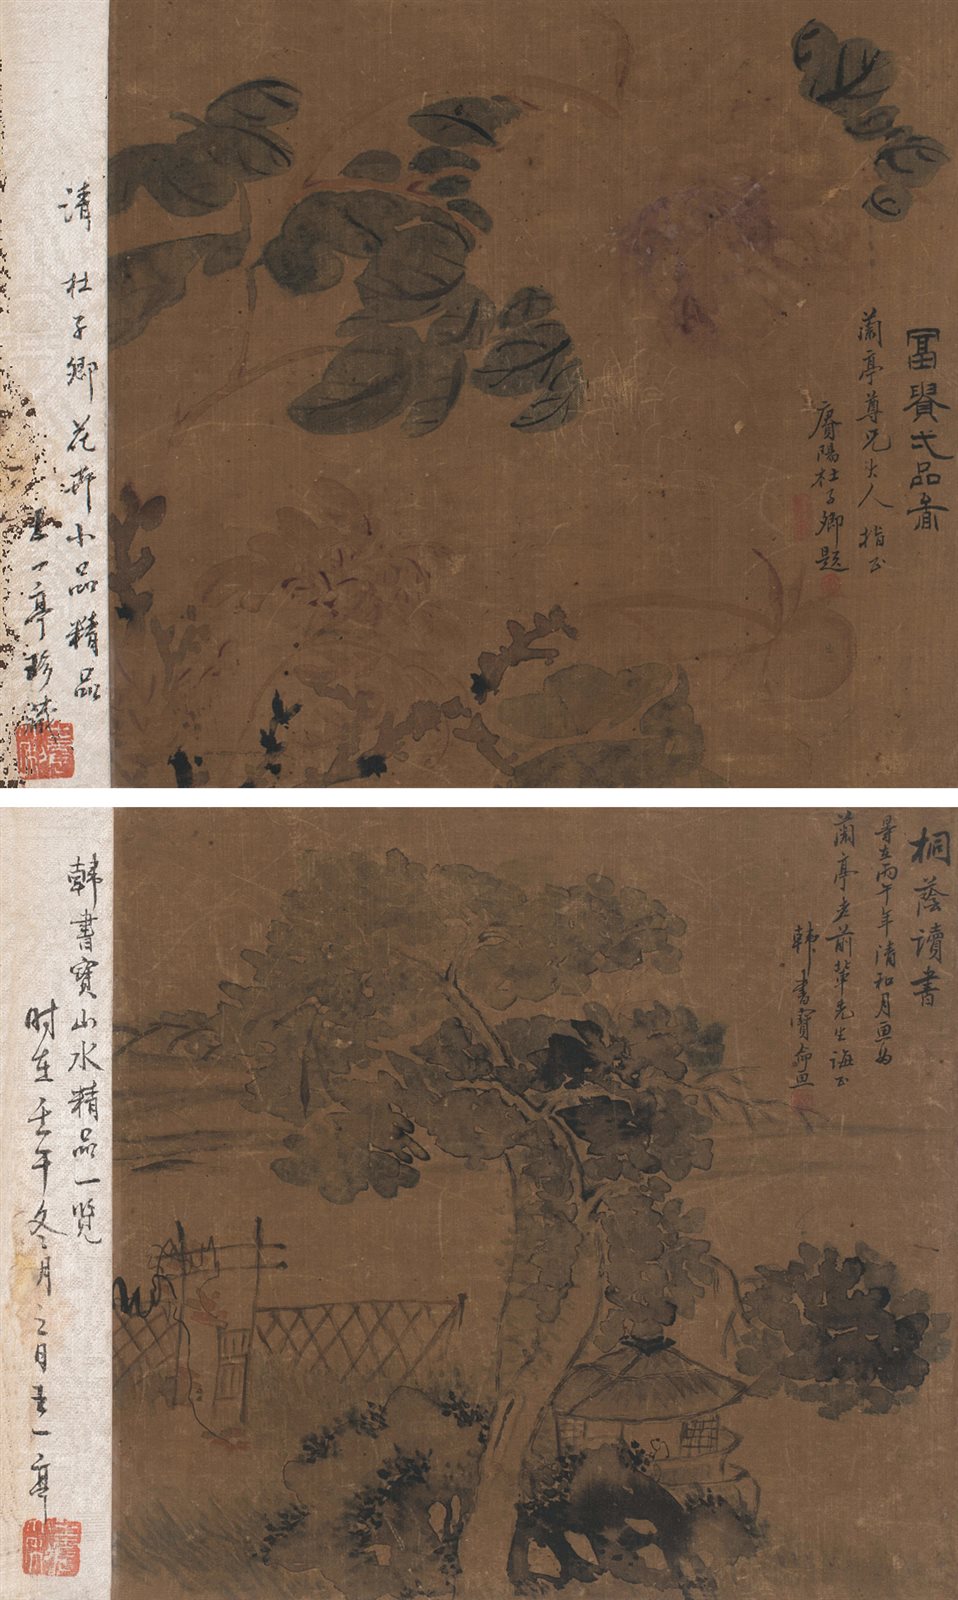 富貴弌品圖
蘭亭尊兄大人指正
賡陽杜子卿題
清 杜子卿花卉小品精品
王一亭珍藏
桐蔭讀書
時在丙午年清和月画為
蘭亭老前輩先生誨正
韩書寶命画
韩書寶山水精品一覽
时在壬午冬月二日王一亭